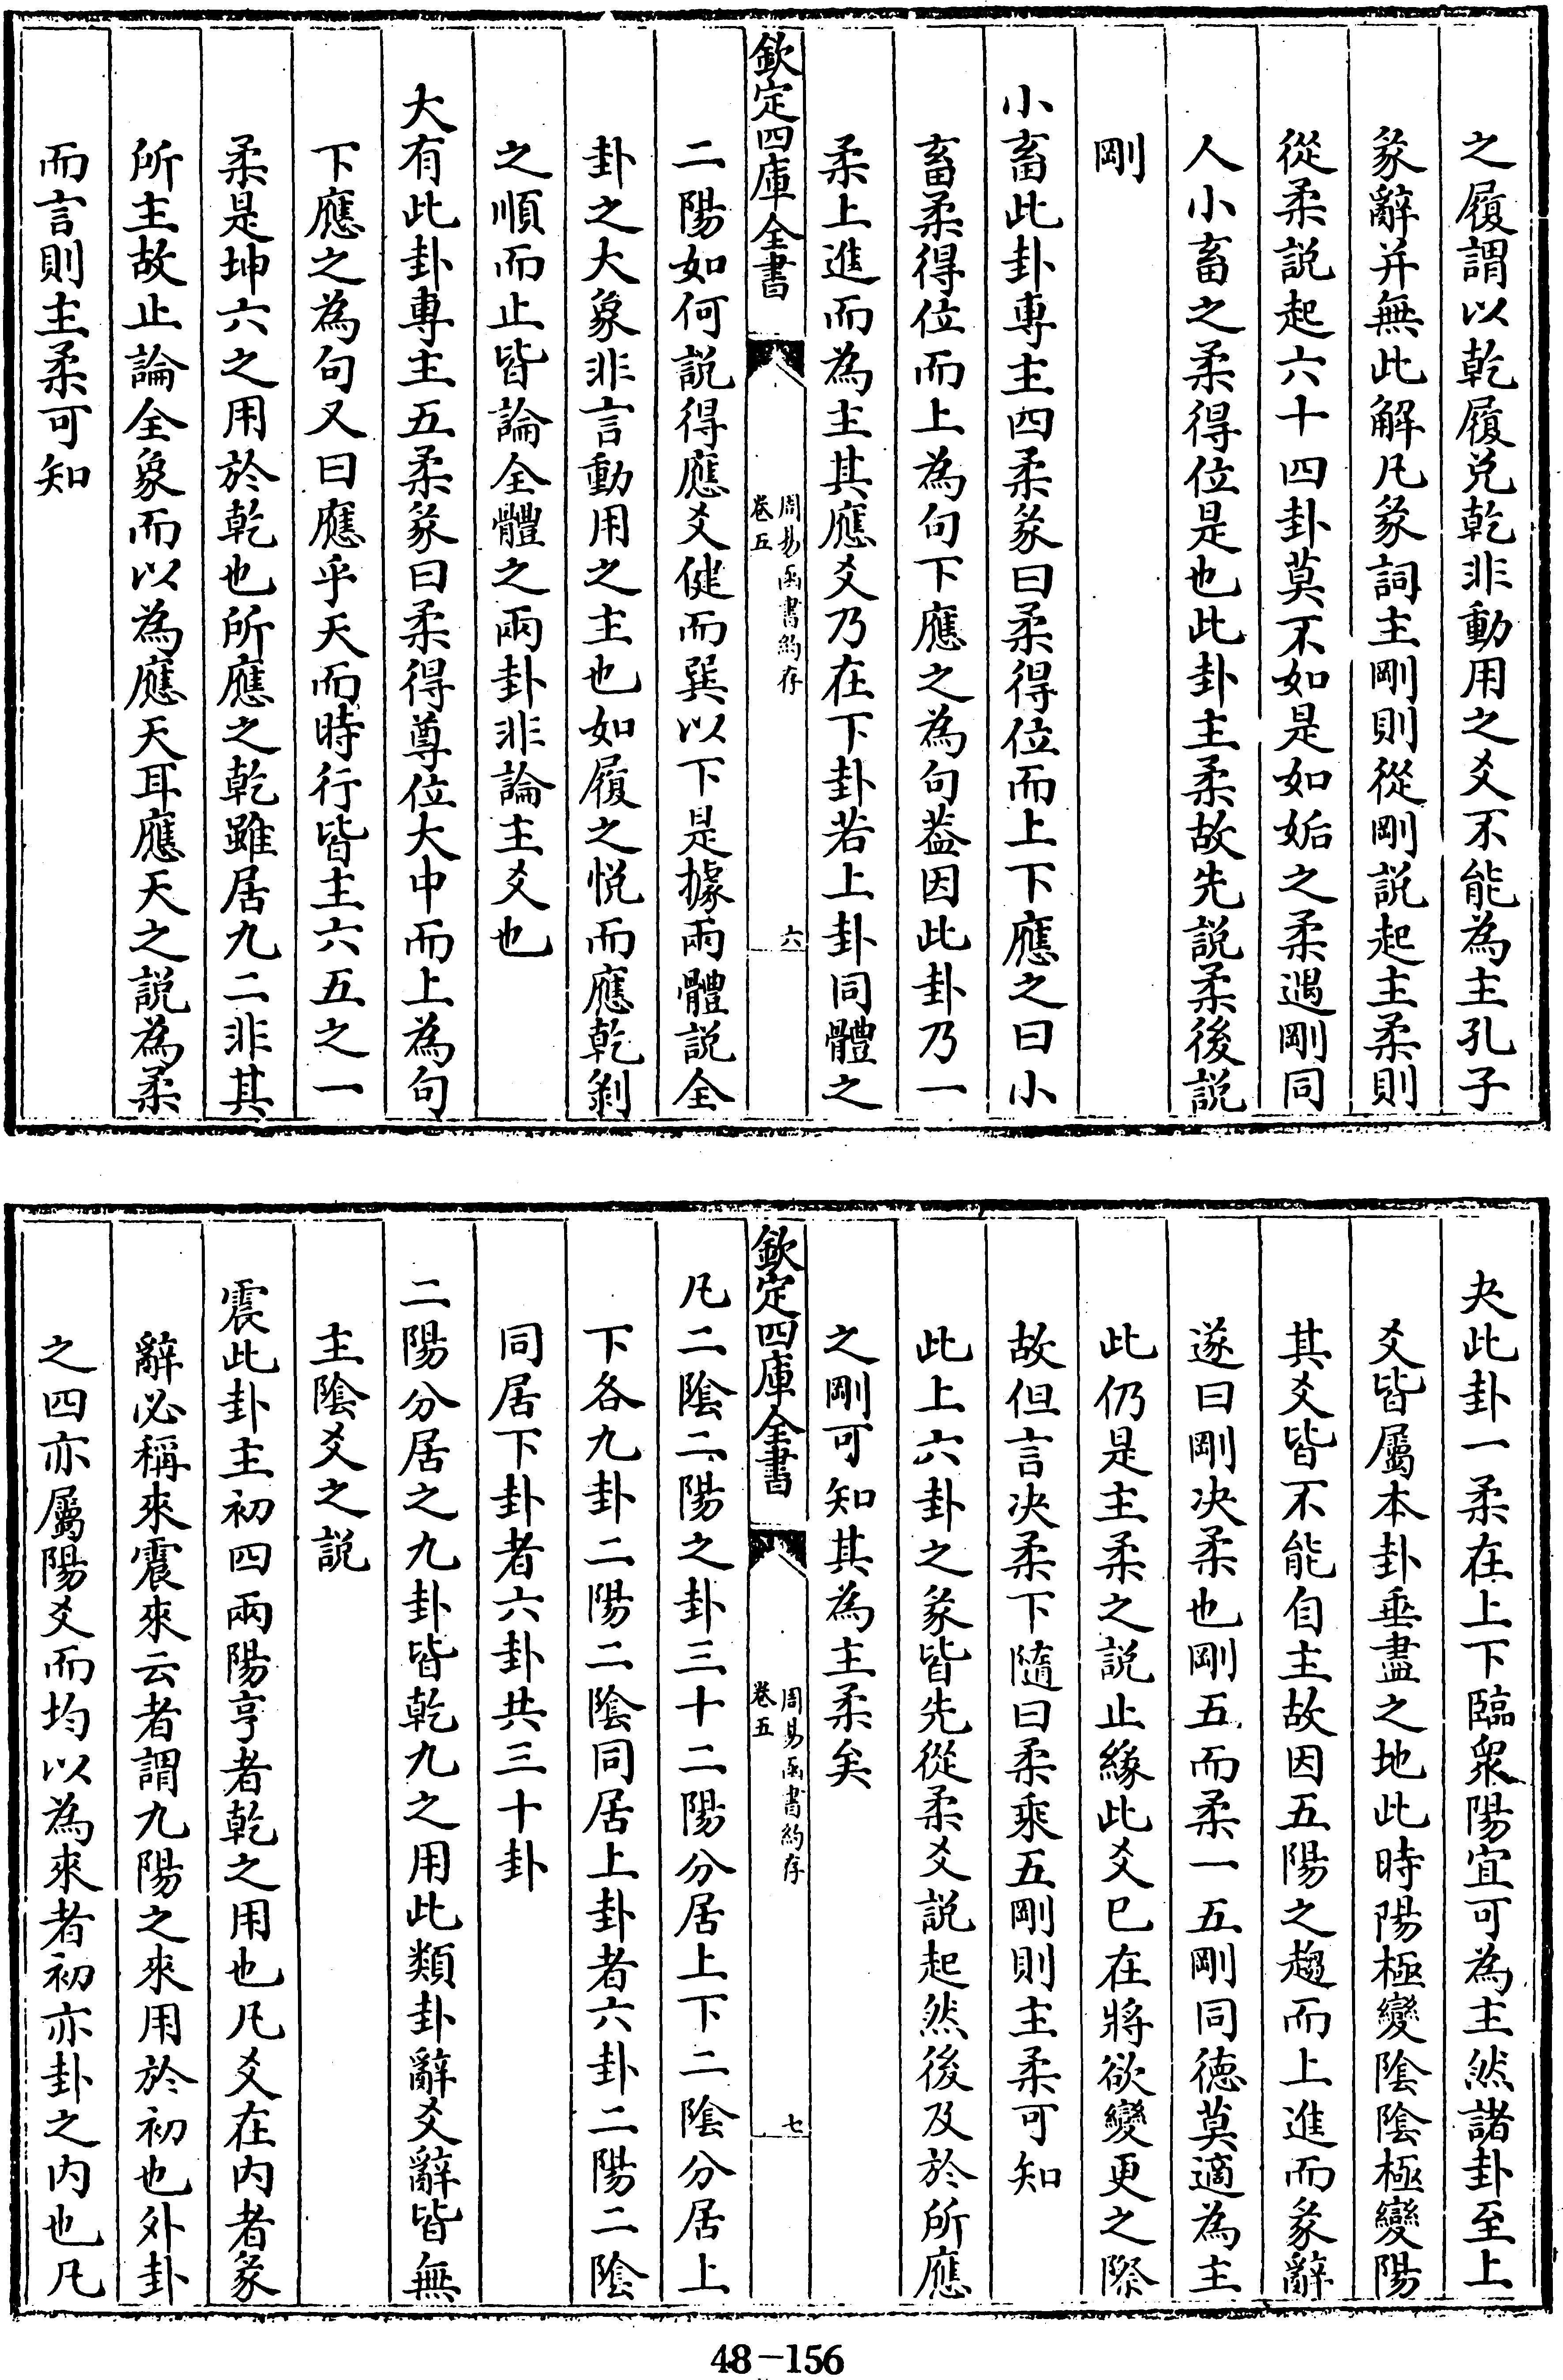 之履謂以乾履兌乾非動用之爻不能為主孔子
彖辭并無此解凡彖詞主剛則從剛説起主柔則
從柔説起六十四卦莫不如是如姤之柔遇剛同
人小畜之柔得位是也此卦主柔故先説柔後説
剛
小畜此卦專主四柔彖曰柔得位而上下應之曰小
畜柔得位而上為句下應之為句葢因此卦乃一
柔上進而為主其應爻乃在下卦若上卦同體之
欽定四庫全書
周易函書約存
卷五
六
二陽如何説得應爻健而巽以下是據兩體説全
卦之大象非言動用之主也如履之悦而應乾剝
之順而止皆論全體之兩卦非論主爻也
大有此卦專主五柔彖曰柔得尊位大中而上為句
下應之為句又曰應乎天而時行皆主六五之一
柔是坤六之用於乾也所應之乾雖居九二非其
所主故止論全象而以為應天耳應天之説為柔
而言則主柔可知
夬此卦一柔在上下臨衆陽宜可為主然諸卦至上
爻皆屬本卦垂盡之地此時陽極變陰陰極變陽
其爻皆不能自主故因五陽之趨而上進而彖辭
遂曰剛决柔也剛五而柔一五剛同德莫適為主
此仍是主柔之説止緣此爻已在將欲變更之際
故但言决柔下隨曰柔乘五剛則主柔可知
此上六卦之彖皆先從柔爻説起然後及於所應
之剛可知其為主柔矣
欽定四庫全書
周易函書約存
卷五
七
凡二陰二陽之卦三十二陽分居上下二陰分居上
下各九卦二陽二陰同居上卦者六卦二陽二陰
同居下卦者六卦共三十卦
二陽分居之九卦皆乾九之用此類卦辭爻辭皆無
主陰爻之説
震此卦主初四兩陽亨者乾之用也凡爻在内者彖
辭必稱來震來云者謂九陽之來用於初也外卦
之四亦屬陽爻而均以為來者初亦卦之内也凡
48-156